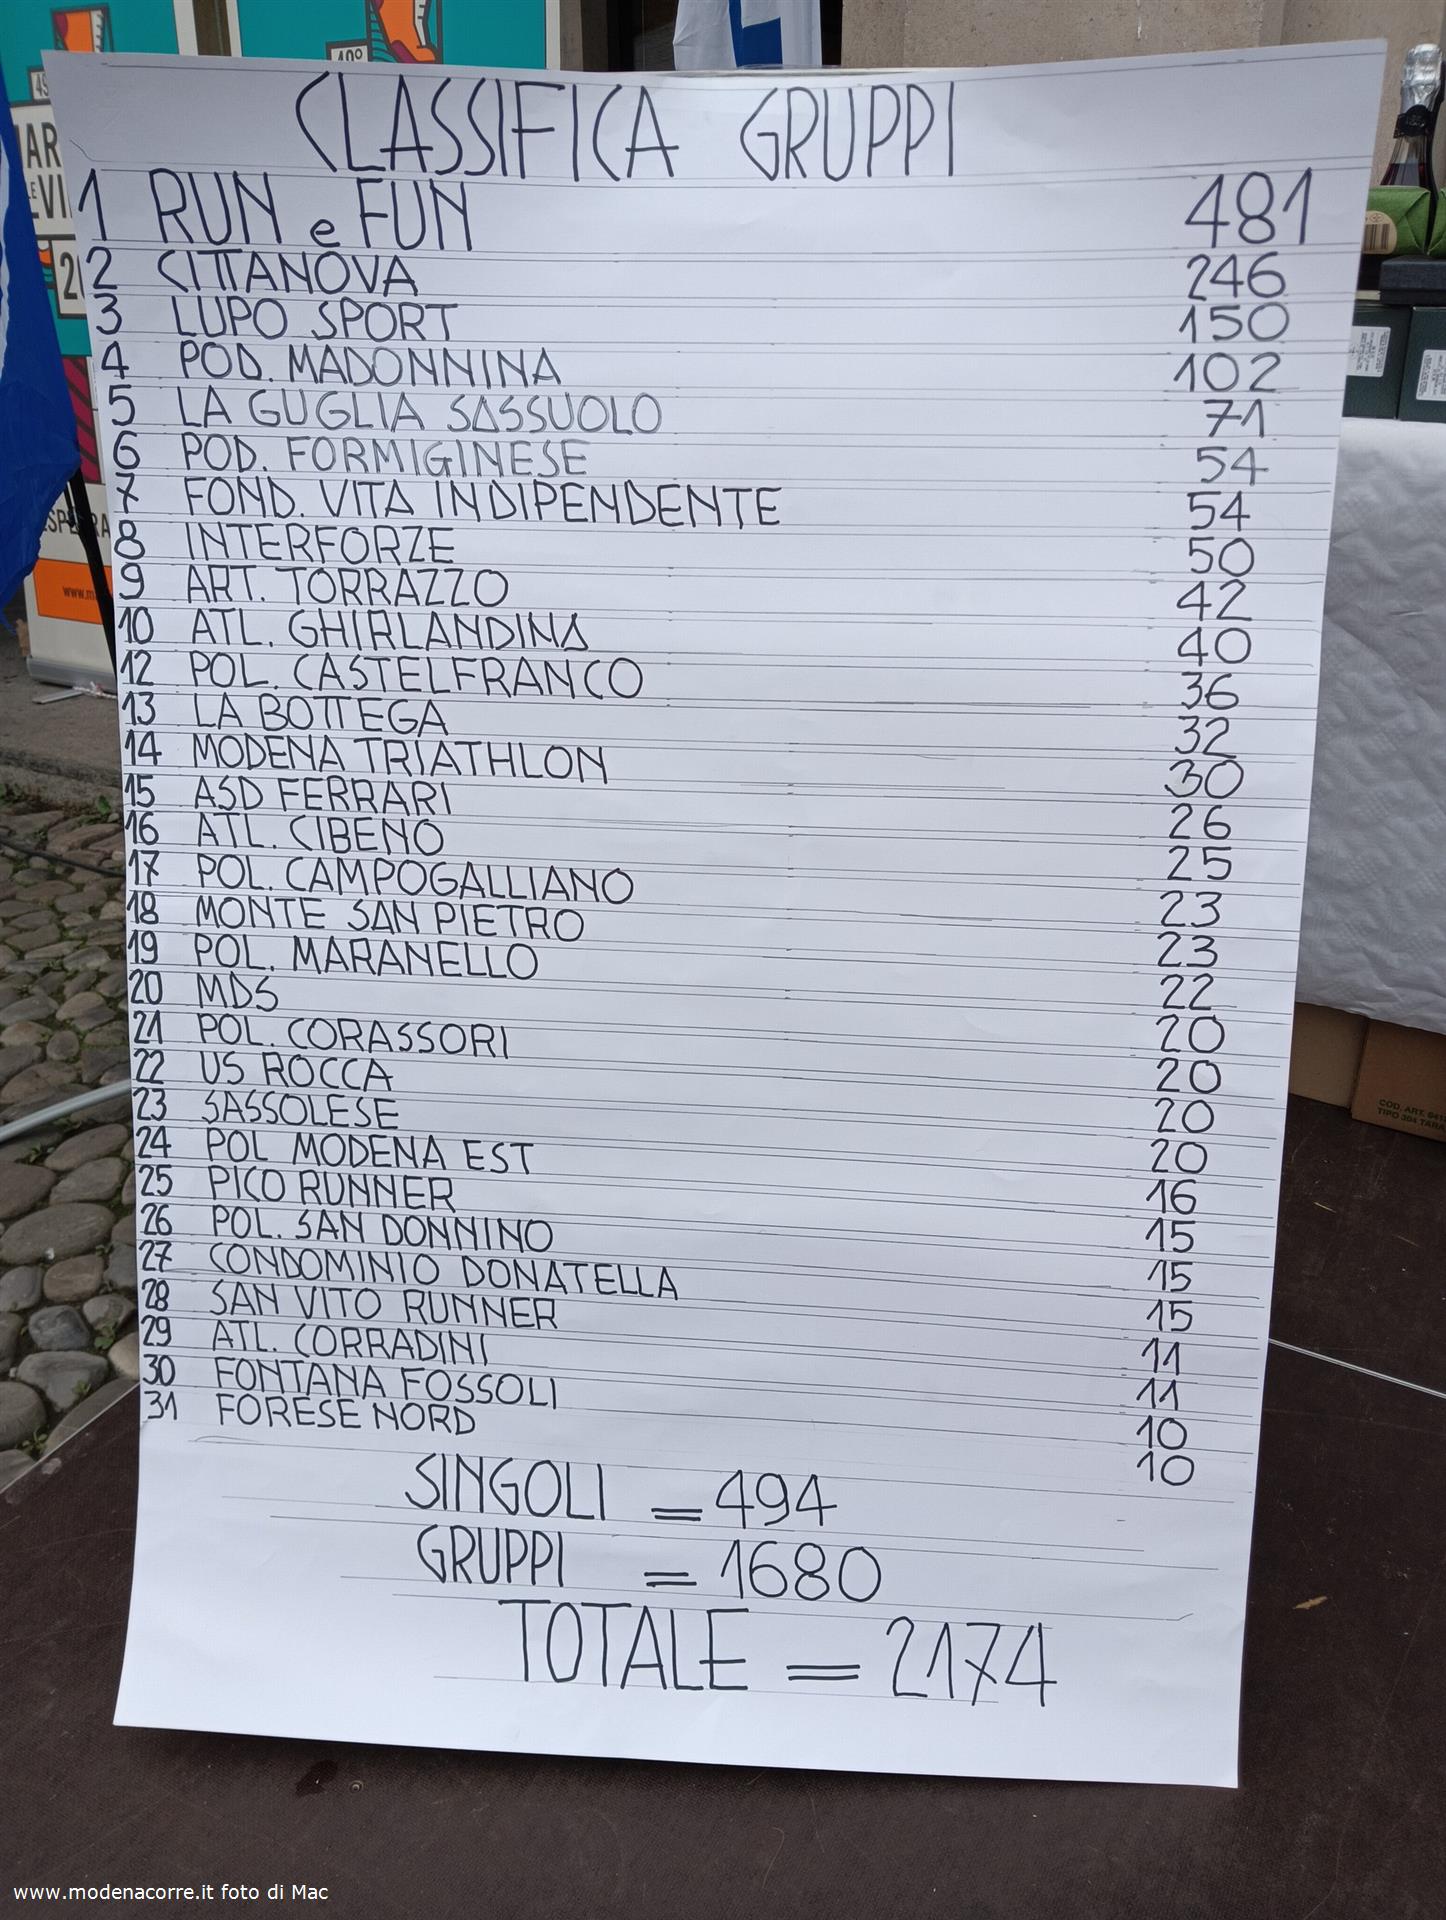 CLASSIFICA GRUPPI
1 RUN e FUN 481
2 CITTANOVA 246
3 LUPO SPORT 150
4 POD. MADONNINA 102
5 LA GUGLIA SASSUOLO 71
6 POD. FORMIGINESE 54
7 FOND. VITA INDIPENDENTE 54
8 INTERFORZE 50
9 ART. TORRAZZO 42
10 ATL. GHIRLANDINA 40
12 POL. CASTELFRANCO 36
13 LA BOTTEGA 32
14 MODENA TRIATHLON 30
15 ASD FERRARI 26
16 ATL. CIBENO 25
17 POL. CAMPOGALLIANO 23
18 MONTE SAN PIETRO 23
19 POL. MARANELLO 22
20 MDS 20
21 POL. CORASSORI 20
22 US ROCCA 20
23 SASSOLESE 20
24 POL MODENA EST 16
25 PICO RUNNER 15
26 POL. SAN DONNINO 15
27 CONDOMINIO DONATELLA 15
28 SAN VITO RUNNER 11
29 ATL. CORRADINI 11
30 FONTANA FOSSOLI 10
31 FORESE NORD 10
SINGOLI = 494
GRUPPI = 1680
TOTALE = 2174
COD. ART.
TIPO 304 TARA
www.modenacorre.it foto di Mac